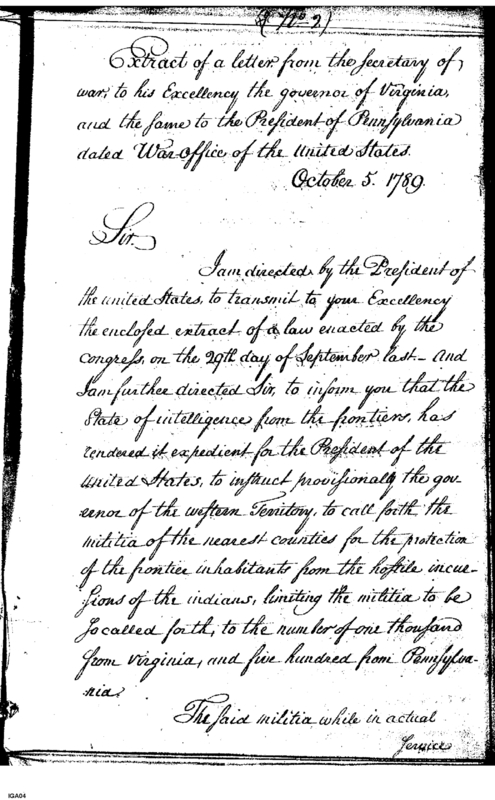 (No. 2)
Extract of a letter from the Secretary of
war, to his Excellency the governor of Virginia,
and the same to the President of Pennsylvania
dated War-office of the United States.
October 5. 1789.
Sir.
I am directed by the President of
the united States, to transmit to your Excellency
the enclosed extract of a law enacted by the
Congress, on the 29th day of September last - And
I am further directed Sir, to inform you that the
State of intelligence from the frontiers, has
rendered it expedient for the President of the
United States, to instruct provisionally the gov-
ernor of the western Territory, to call forth the
militia of the nearest counties for the protection
of the frontier inhabitants from the hostile incur-
sions of the indians, limiting the militia to be
so called forth, to the number of one thousand
from Virginia, and five hundred from Pennsylva-
nia.
The said militia while in actual
Service
IGA04